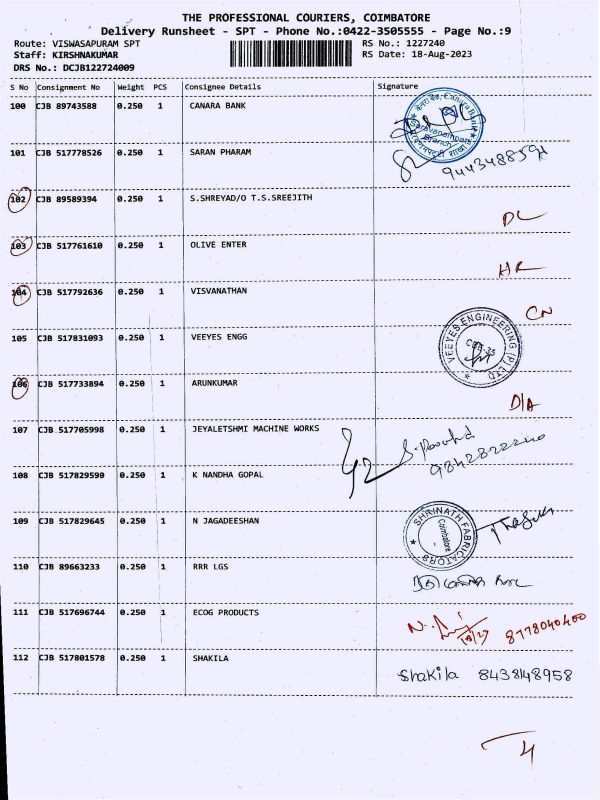 THE PROFESSIONAL COURIERS, COIMBATORE
Delivery Runsheet - SPT - Phone No.:0422-3505555 - Page No.:9
Route: VISWASAPURAM SPT
RS No.: 1227240
Staff: KIRSHNAKUMAR
RS Date: 18-Aug-2023
DRS No.: DCJB122724009
S No Consignment No Weight PCS Consignee Details Signature
100 CJB 89743588 0.250 1 CANARA BANK
Canara Bank
Branch
101 CJB 517778526 0.250 1 SARAN PHARAM
102 CJB 89589394 0.250 1 S.SHREYAD/O T.S.SREEJITH
DL
103 CJB 517761610 0.250 1 OLIVE ENTER
HR
104 CJB 517792636 0.250 1 VISVANATHAN
CN
105 CJB 517831093 0.250 1 VEEYES ENGG
VEEYES ENGINEERING (P) LTD
CBE-35
106 CJB 517733894 0.250 1 ARUNKUMAR
D/A
107 CJB 517705998 0.250 1 JEYALETSHMI MACHINE WORKS
108 CJB 517829590 0.250 1 K NANDHA GOPAL
109 CJB 517829645 0.250 1 N JAGADEESHAN
SHRINATH FABRICATORS
Coimbatore
110 CJB 89663233 0.250 1 RRR LGS
111 CJB 517696744 0.250 1 ECOG PRODUCTS
8778040400
112 CJB 517801578 0.250 1 SHAKILA
Shakila 8438148958
4